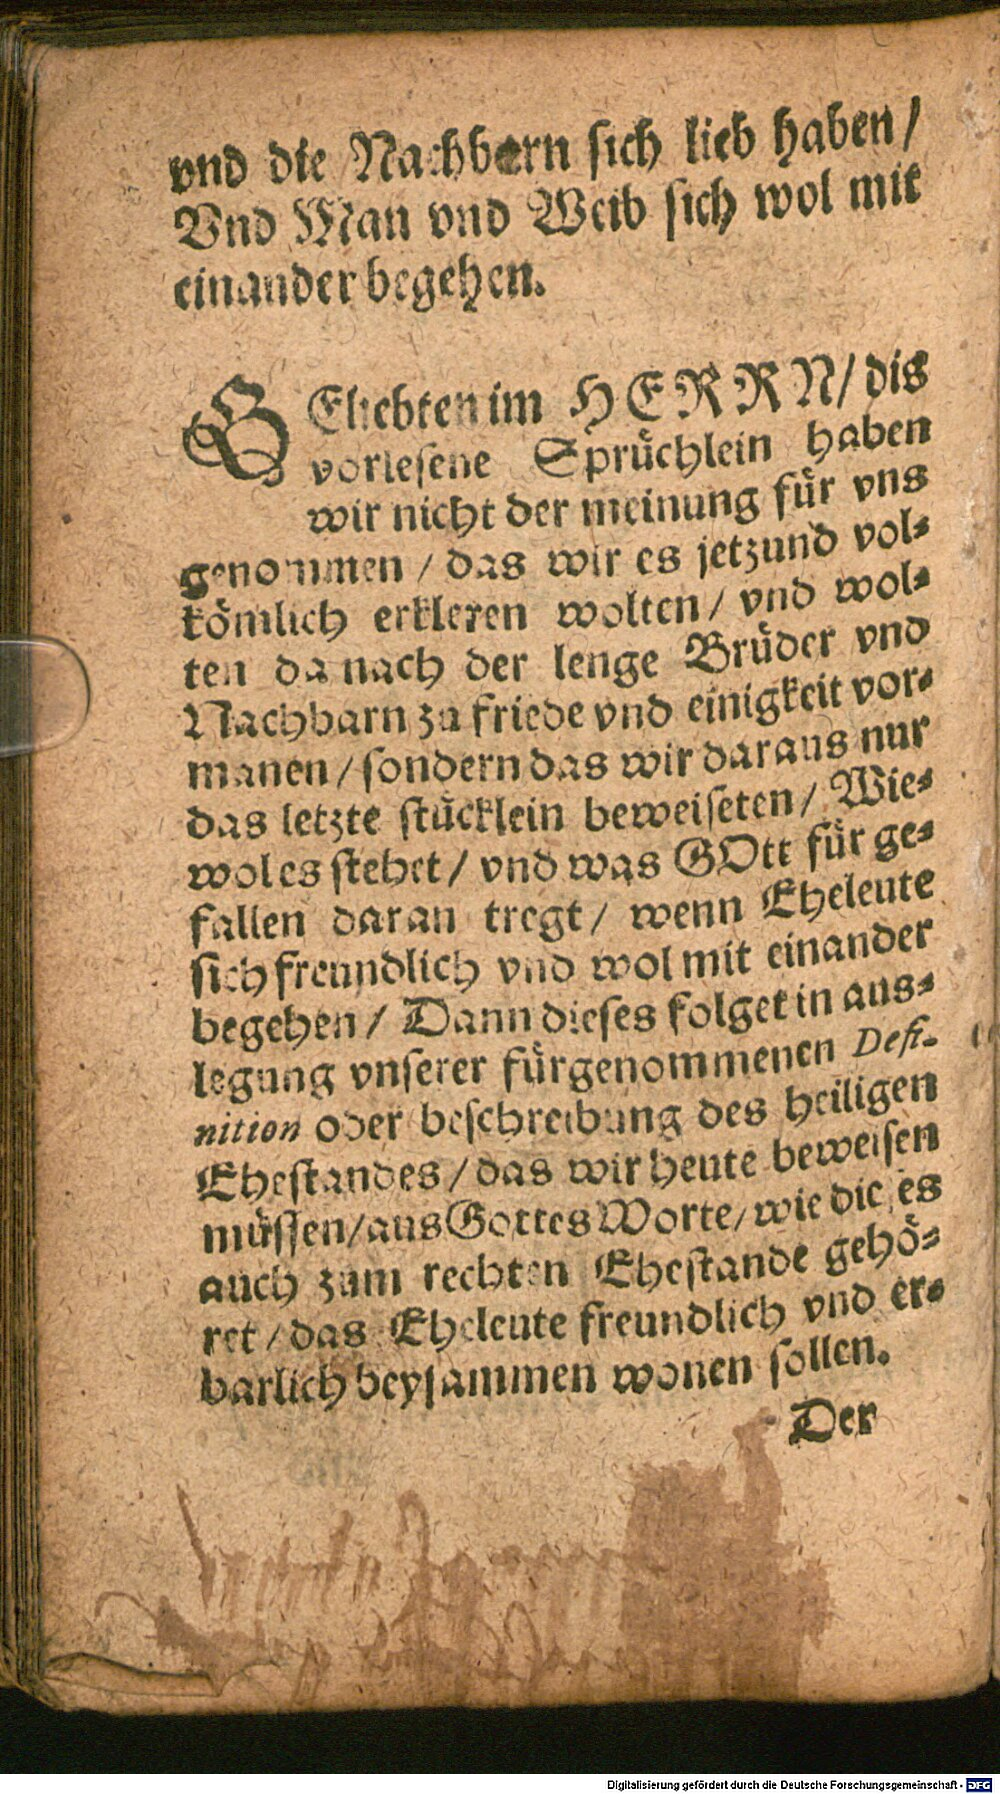 vnd die Nachbarn sich lieb haben /
Vnd Man vnd Weib sich wol mit
einander begehen.
GEliebten im HERRN / dis
vorlesene Sprüchlein haben
wir nicht der meinung für vns
genommen / das wir es jetzund vol-
kömlich erkleren wolten / vnd wol-
ten da nach der lenge Brüder vnd
Nachbarn zu friede vnd einigkeit vor-
manen / sondern das wir daraus nur
das letzte stücklein beweiseten / Wie-
wol es stehet / vnd was GOtt für ge-
fallen daran tregt / wenn Eheleute
sich freundlich vnd wol mit einander
begehen / Dann dieses folget in aus-
legung vnserer fürgenommenen Defi-
nition oder beschreibung des heiligen
Ehestandes / das wir heute beweisen
müssen / aus Gottes Worte / wie die es
auch zum rechten Ehestande gehö-
ret / das Eheleute freundlich vnd er-
barlich beysammen wonen sollen.
Der
Digitalisierung gefördert durch die Deutsche Forschungsgemeinschaft - DFG